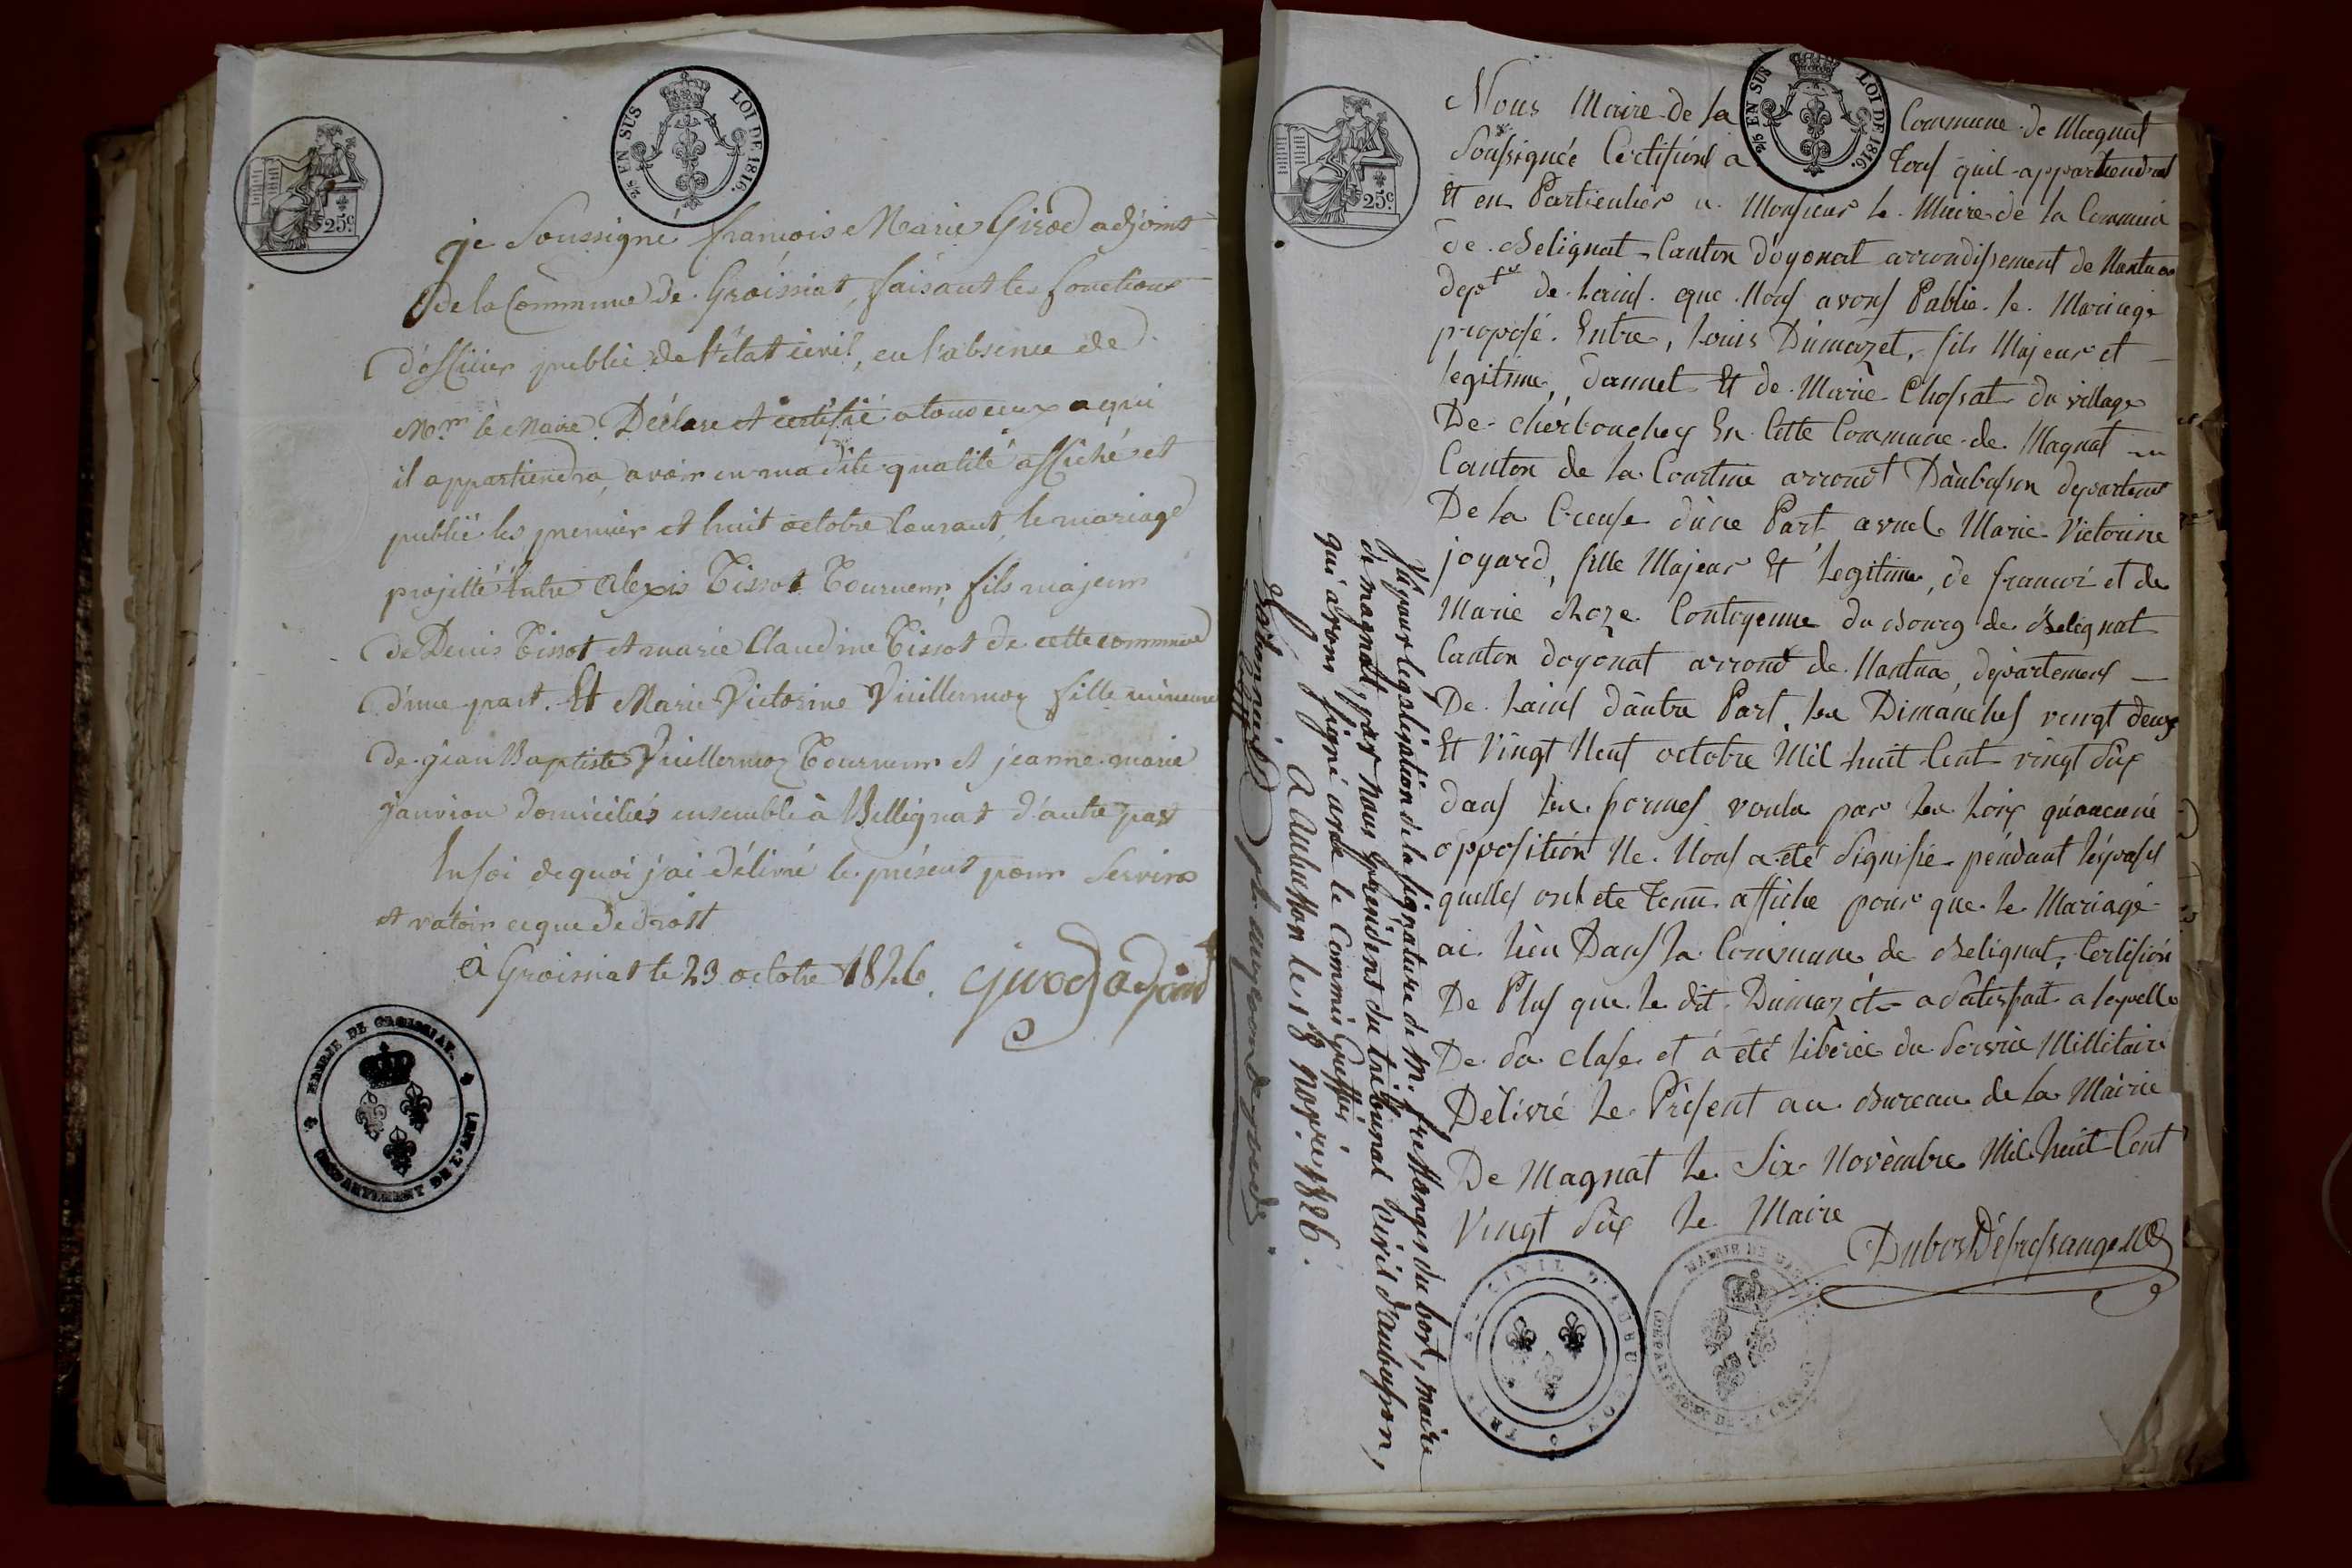 25 EN SUS LOI DE 1816.
25c.
je Soussigné françois Marie Girod adjoint
de la Commune de Groissiat, faisant les fonctions
d'officier public de l'état civil, en l'absence de
Mr. le Maire. Déclare et certifie a tous ceux a qui
il appartiendra, avoir en ma dite qualité affiché et
publié les premier et huit octobre courant, le mariage
projetté Entre Alexis Tissot Tourneur, fils majeur
de Denis Tissot et marie Claudine Tissot de cette commune
d'une part. Et Marie Victorine Vuillermoz fille mineure
de jean Baptiste Vuillermoz Tourneur et jeanne marie
janvion domiciliés ensemble à Bellignat d'autre part
En foi de quoi j'ai délivré le présent pour servir
et valoir ce que de droit
à Groissiat le 23 octobre 1826. girod adjoint
MAIRIE DE GROISSIAT.
DEPARTEMENT DE L'AIN
25 EN SUS LOI DE 1816.
25c.
Nous Maire de la Commune de Magnat
Soussignée Certifions a Tous quil appartiendra
Et en Particulier a Monsieur le Maire de la Commune
de Belignat Canton d'oyonat arrondissement de Nantua
dept de Lains. que Nous avons Publié le Mariage
proposé. Entre, Louis Dumazet, fils Majeur et
legitime, dannet Et de Marie Chossat du village
De cherbouchey En Cette Commune de Magnat
Canton de la Courtine arront Daubusson departemt
De la Creuse d'une Part, avuel Marie Victorine
joyard, fille Majeur Et Legitime, de francoi et de
Marie choze Contoyenne du Bourg de Belignat
Canton doyonat arront de Nantua, département
De Lains dautre Part, les Dimanches vingt deux
Et Vingt Neuf octobre Mil huit Cent vingt Six
dans les formes voulu par les Loix qu'aucune
opposition Ne Nous a été Signifié pendant l'espases
quelles ont ete Tenu affiche pour que le Mariage
ai lieu Dans la Commune de Belignat, Certifions
De Plus que le dit Dumazet a Satisfait a lapelle
De Sa clase et a été libérée du Service Millitaire
Délivré le Présent au Bureau de la Mairie
De Magnat le Six Novembre Mil huit Cent
Vingt Six le Maire
Dubost Défressanges
Vu pour legalisation de la signature de M. fressanges du bost, maire
de magnat, par nous président du tribunal Civil d'aubusson,
qui avons signé avec le Commis Greffier,
A Aubusson le 18 novbre 1826.
TRIB. CIVIL D'AUBUSSON
MAIRIE DE MAGNAT
DEPARTEMENT DE LA CREUSE